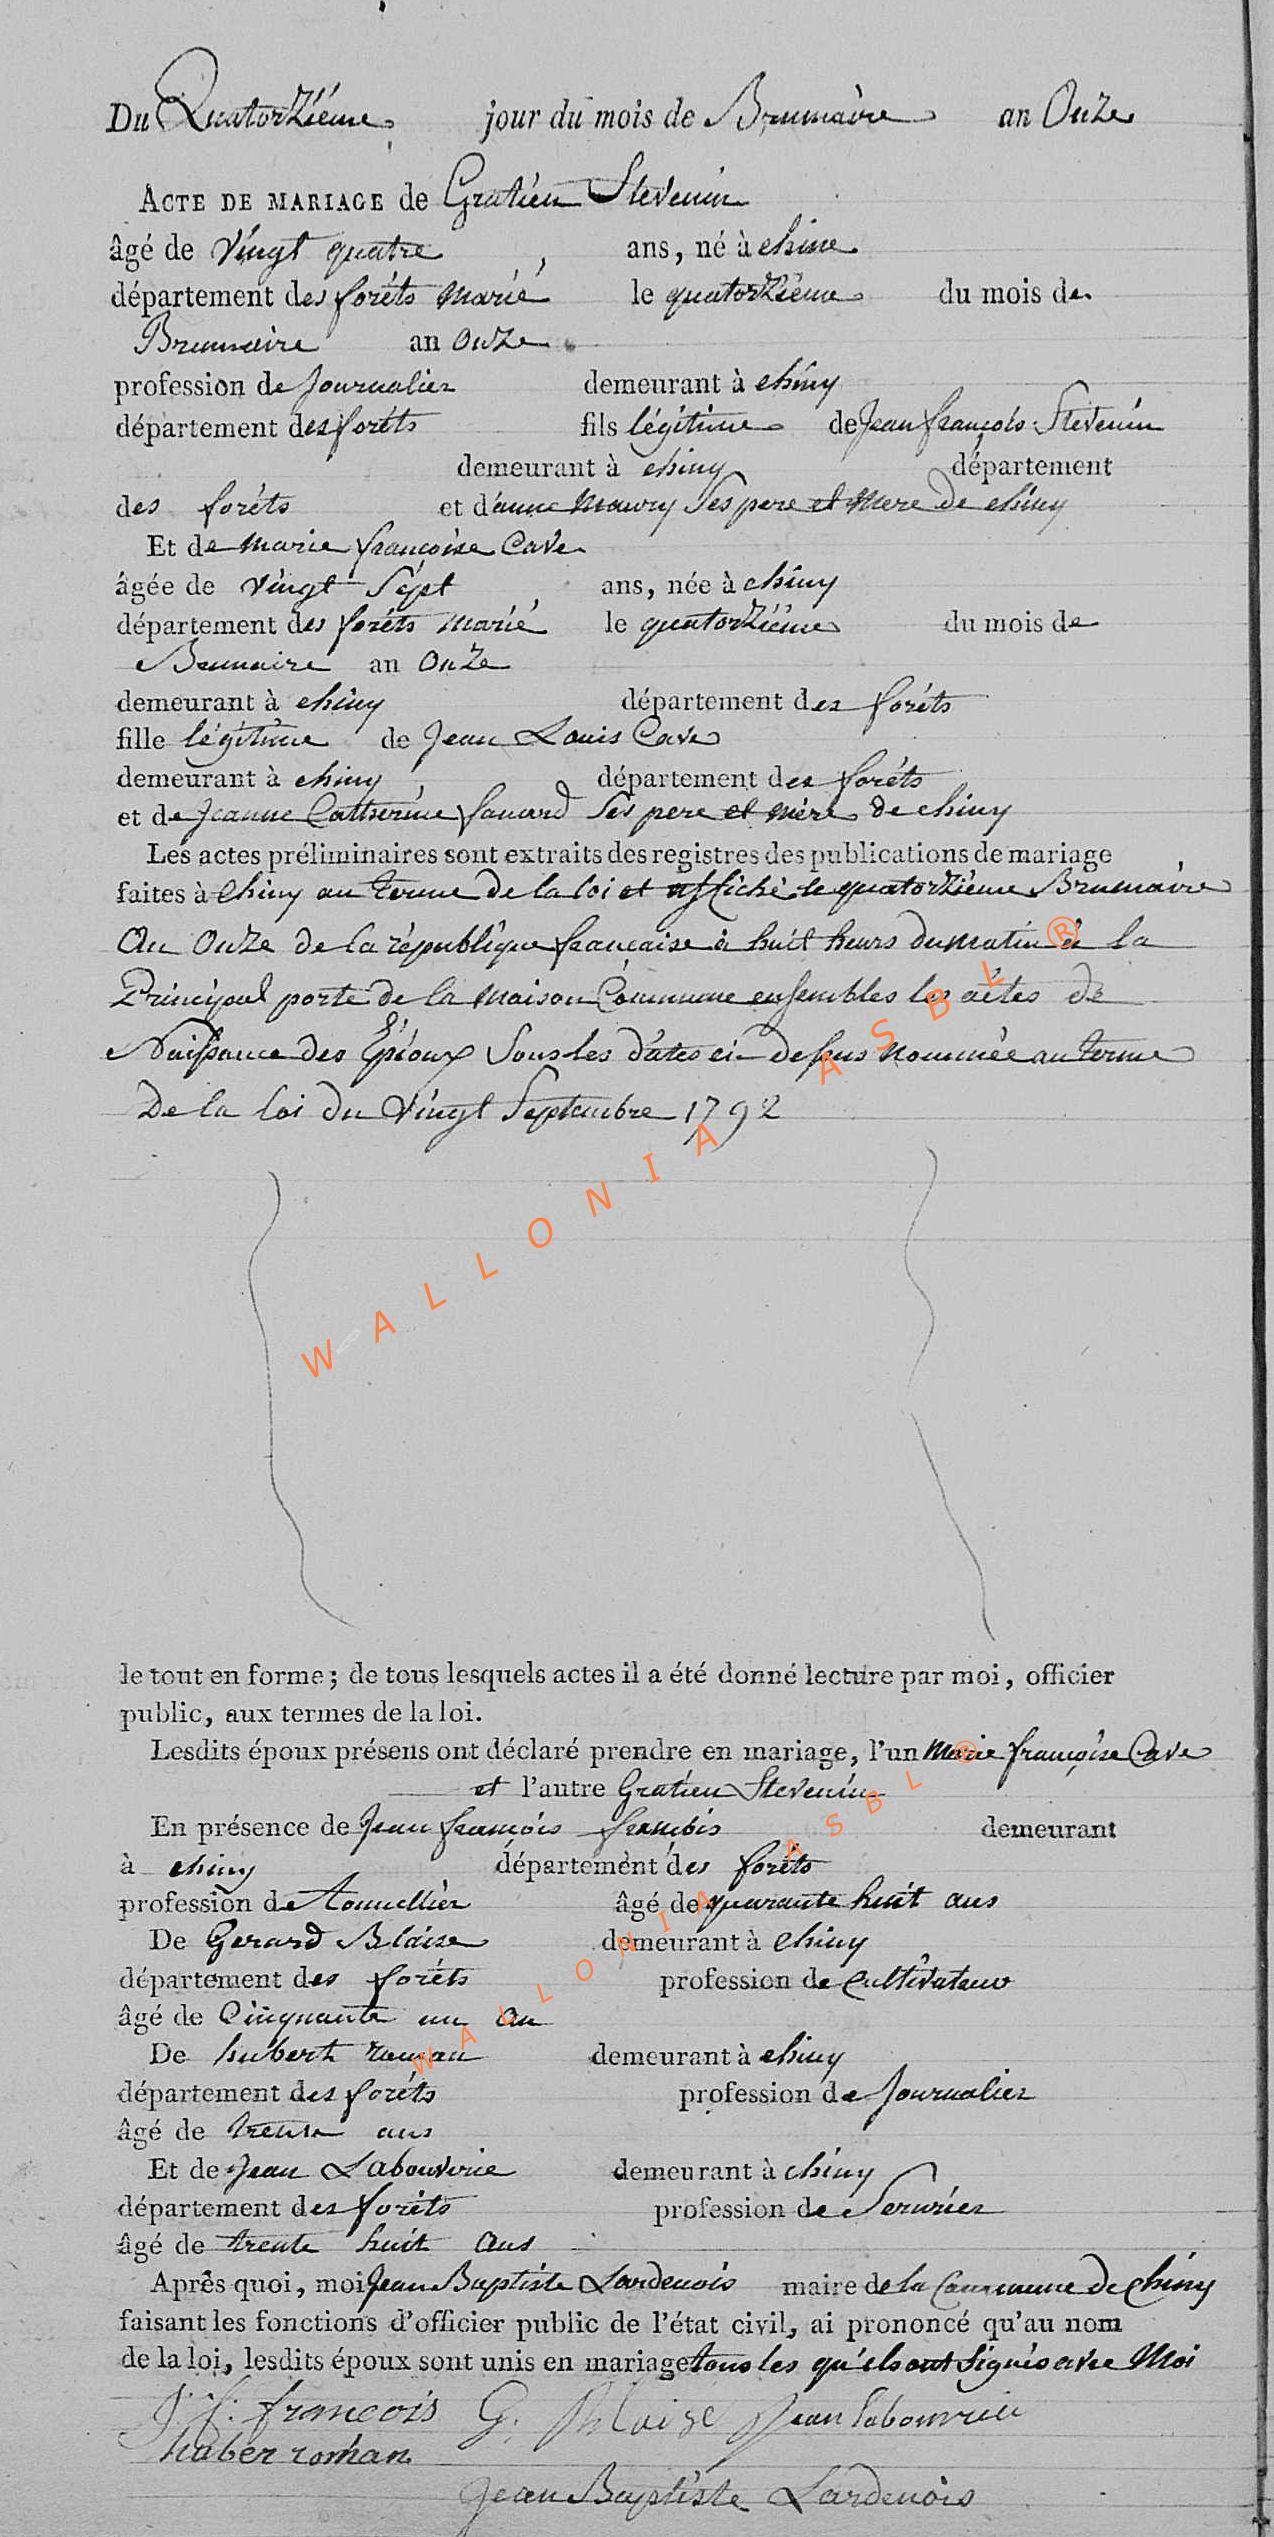 Du Quatorzième jour du mois de Brumaire an Onze
ACTE DE MARIAGE de Gratien Stevenin
âgé de vingt quatre ans, né à chine
département des forêts marié le quatorzième du mois de
Brumaire an onze
profession de Journalier demeurant à chiny
département des forêts fils légitime de Jean françois Stevenin
demeurant à chiny département
des forêts et d'anne maury Ses pere et mere de chiny
Et de marie françoise Cave
âgée de vingt Sept ans, née à chiny
département des forêts marié le quatorzième du mois de
Brumaire an Onze
demeurant à chiny département des forêts
fille légitime de Jean Louis Cave
demeurant à chiny département des forêts
et de Jeanne Catherine fanard Ses pere et mère de chiny
Les actes préliminaires sont extraits des registres des publications de mariage
faites à chiny au terme de la loi et affiché le quatorzième Brumaire
an onze de la république française à huit heurs du matin à la
Principal porte de la maison Commune ensembles les actes de
Naissance des Epioux Sous les dates ci-dessus nommée au terme
De la loi du vingt Septembre 1792
le tout en forme; de tous lesquels actes il a été donné lecture par moi, officier
public, aux termes de la loi.
Lesdits époux présens ont déclaré prendre en mariage, l'un marie françoise Cave
et l'autre Gratien Stevenin
En présence de Jean françois françois demeurant
à chiny département des forêts
profession de tonnellier âgé de quarante huit ans
De Gerard Blaise demeurant à chiny
département des forêts profession de cultivateur
âgé de Cinquante un an
De hubert roman demeurant à chiny
département des forêts profession de Journalier
âgé de trente ans
Et de Jean Labouverie demeurant à chiny
département des forêts profession de Serurier
âgé de trente huit ans
Après quoi, moi Jean Baptiste Lardenois maire de la Commune de chiny
faisant les fonctions d'officier public de l'état civil, ai prononcé qu'au nom
de la loi, lesdits époux sont unis en mariage tous les qu'els ont Signés avec Moi
J. f. francois G. Blaise Jean labouvrie
huber roman
Jean Baptiste Lardenois
WALLONIA ASBL ®
WALLONIA ASBL ®